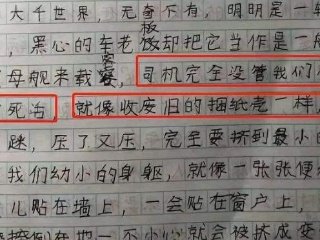 大千世界，无奇不有，明明是一辆
，黑心的车老板却把它当作是一
母舰来载客，司机完全没管我们
死活，就像收废旧的捆纸壳一样，
，压了又压，完全要挤到最小
我们幼小的身躯，就像一张张便
儿贴在墙上，一会贴在窗户上，
一不小心就会被挤成